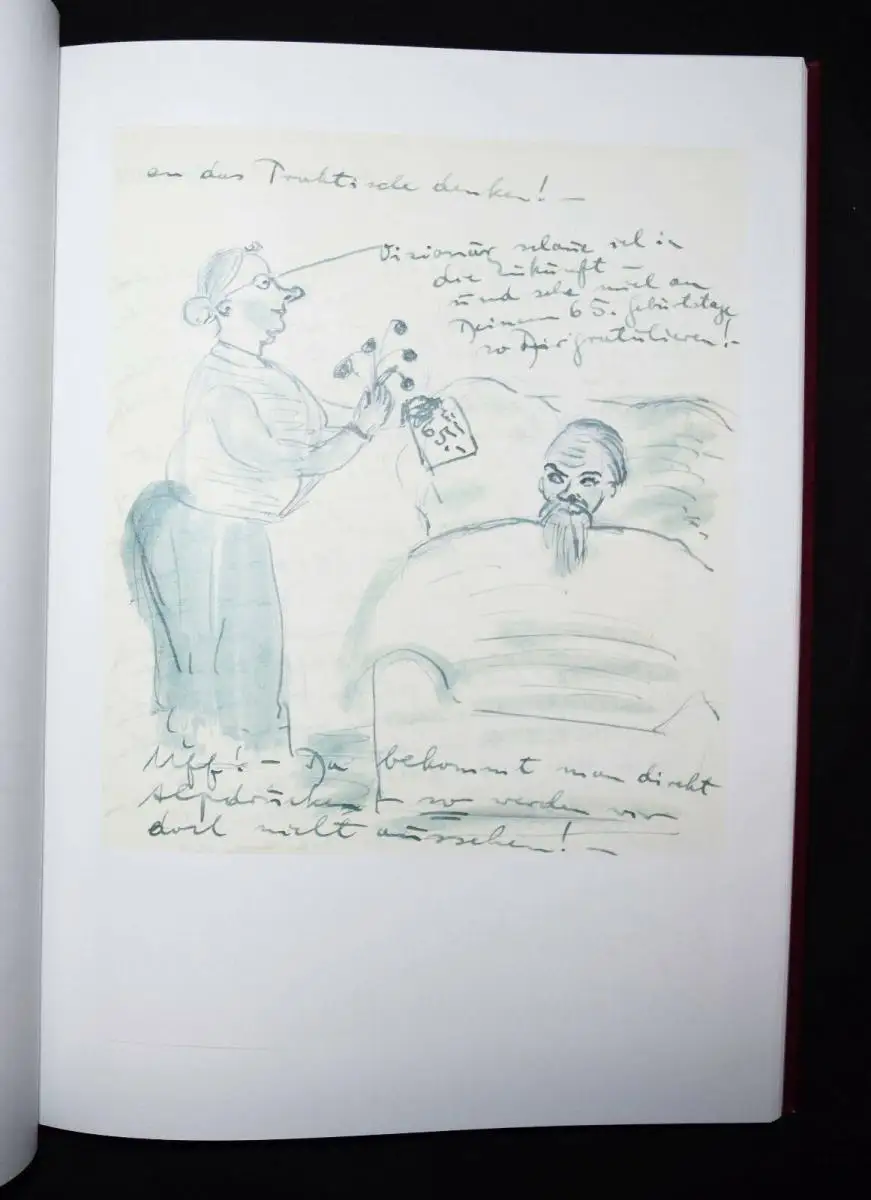 an das Praktische denken! –
Visionär schaue ich in
die Zukunft –
und sehe mich an
Deinem 65. Geburtstage
so Dir gratulieren! –
65. –
Uff! – Da bekommt man direkt
Alpdrücken – so werden wir
doch nicht aussehen! –